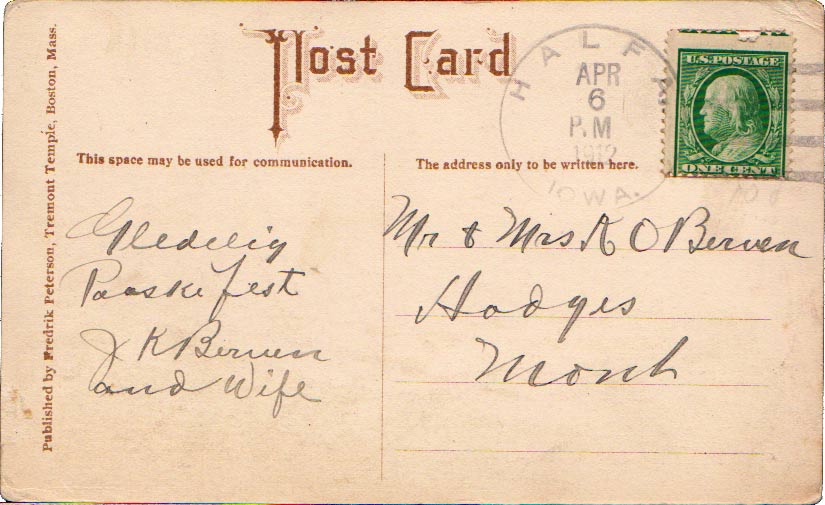 Post Card
HALFA
APR
6
P.M
1912
IOWA.
U.S. POSTAGE
ONE CENT
Published by Fredrik Peterson, Tremont Temple, Boston, Mass.
This space may be used for communication.
The address only to be written here.
Gledelig
Paaske fest
J K Berven
and Wife
Mr & Mrs K O Berven
Hodges
Mont